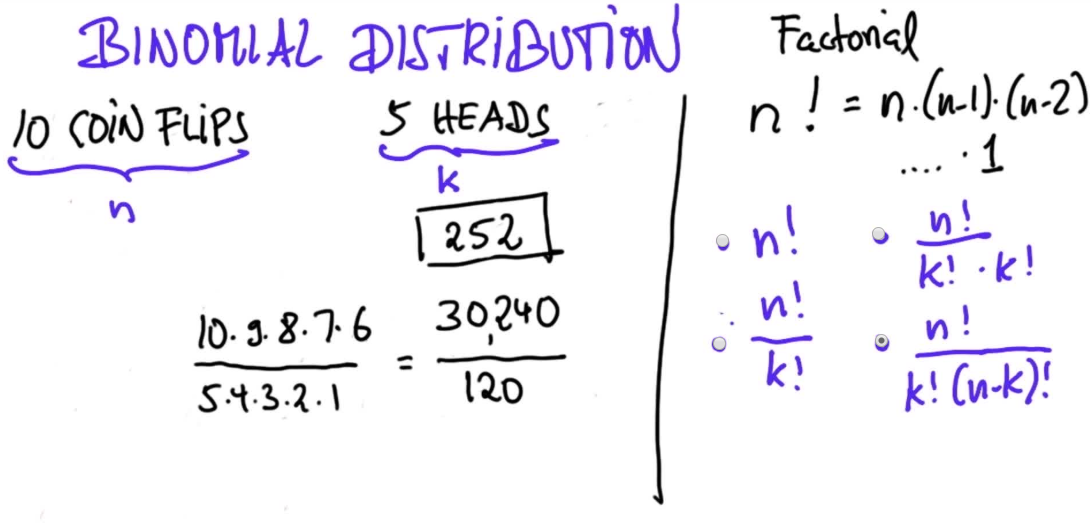 BINOMIAL DISTRIBUTION
10 COIN FLIPS
n
5 HEADS
k
252
10·9·8·7·6
5·4·3·2·1
=
30,240
120
Factorial
n! = n·(n-1)·(n-2)
.... · 1
n!
n!
k! · k!
n!
k!
n!
k! (n-k)!